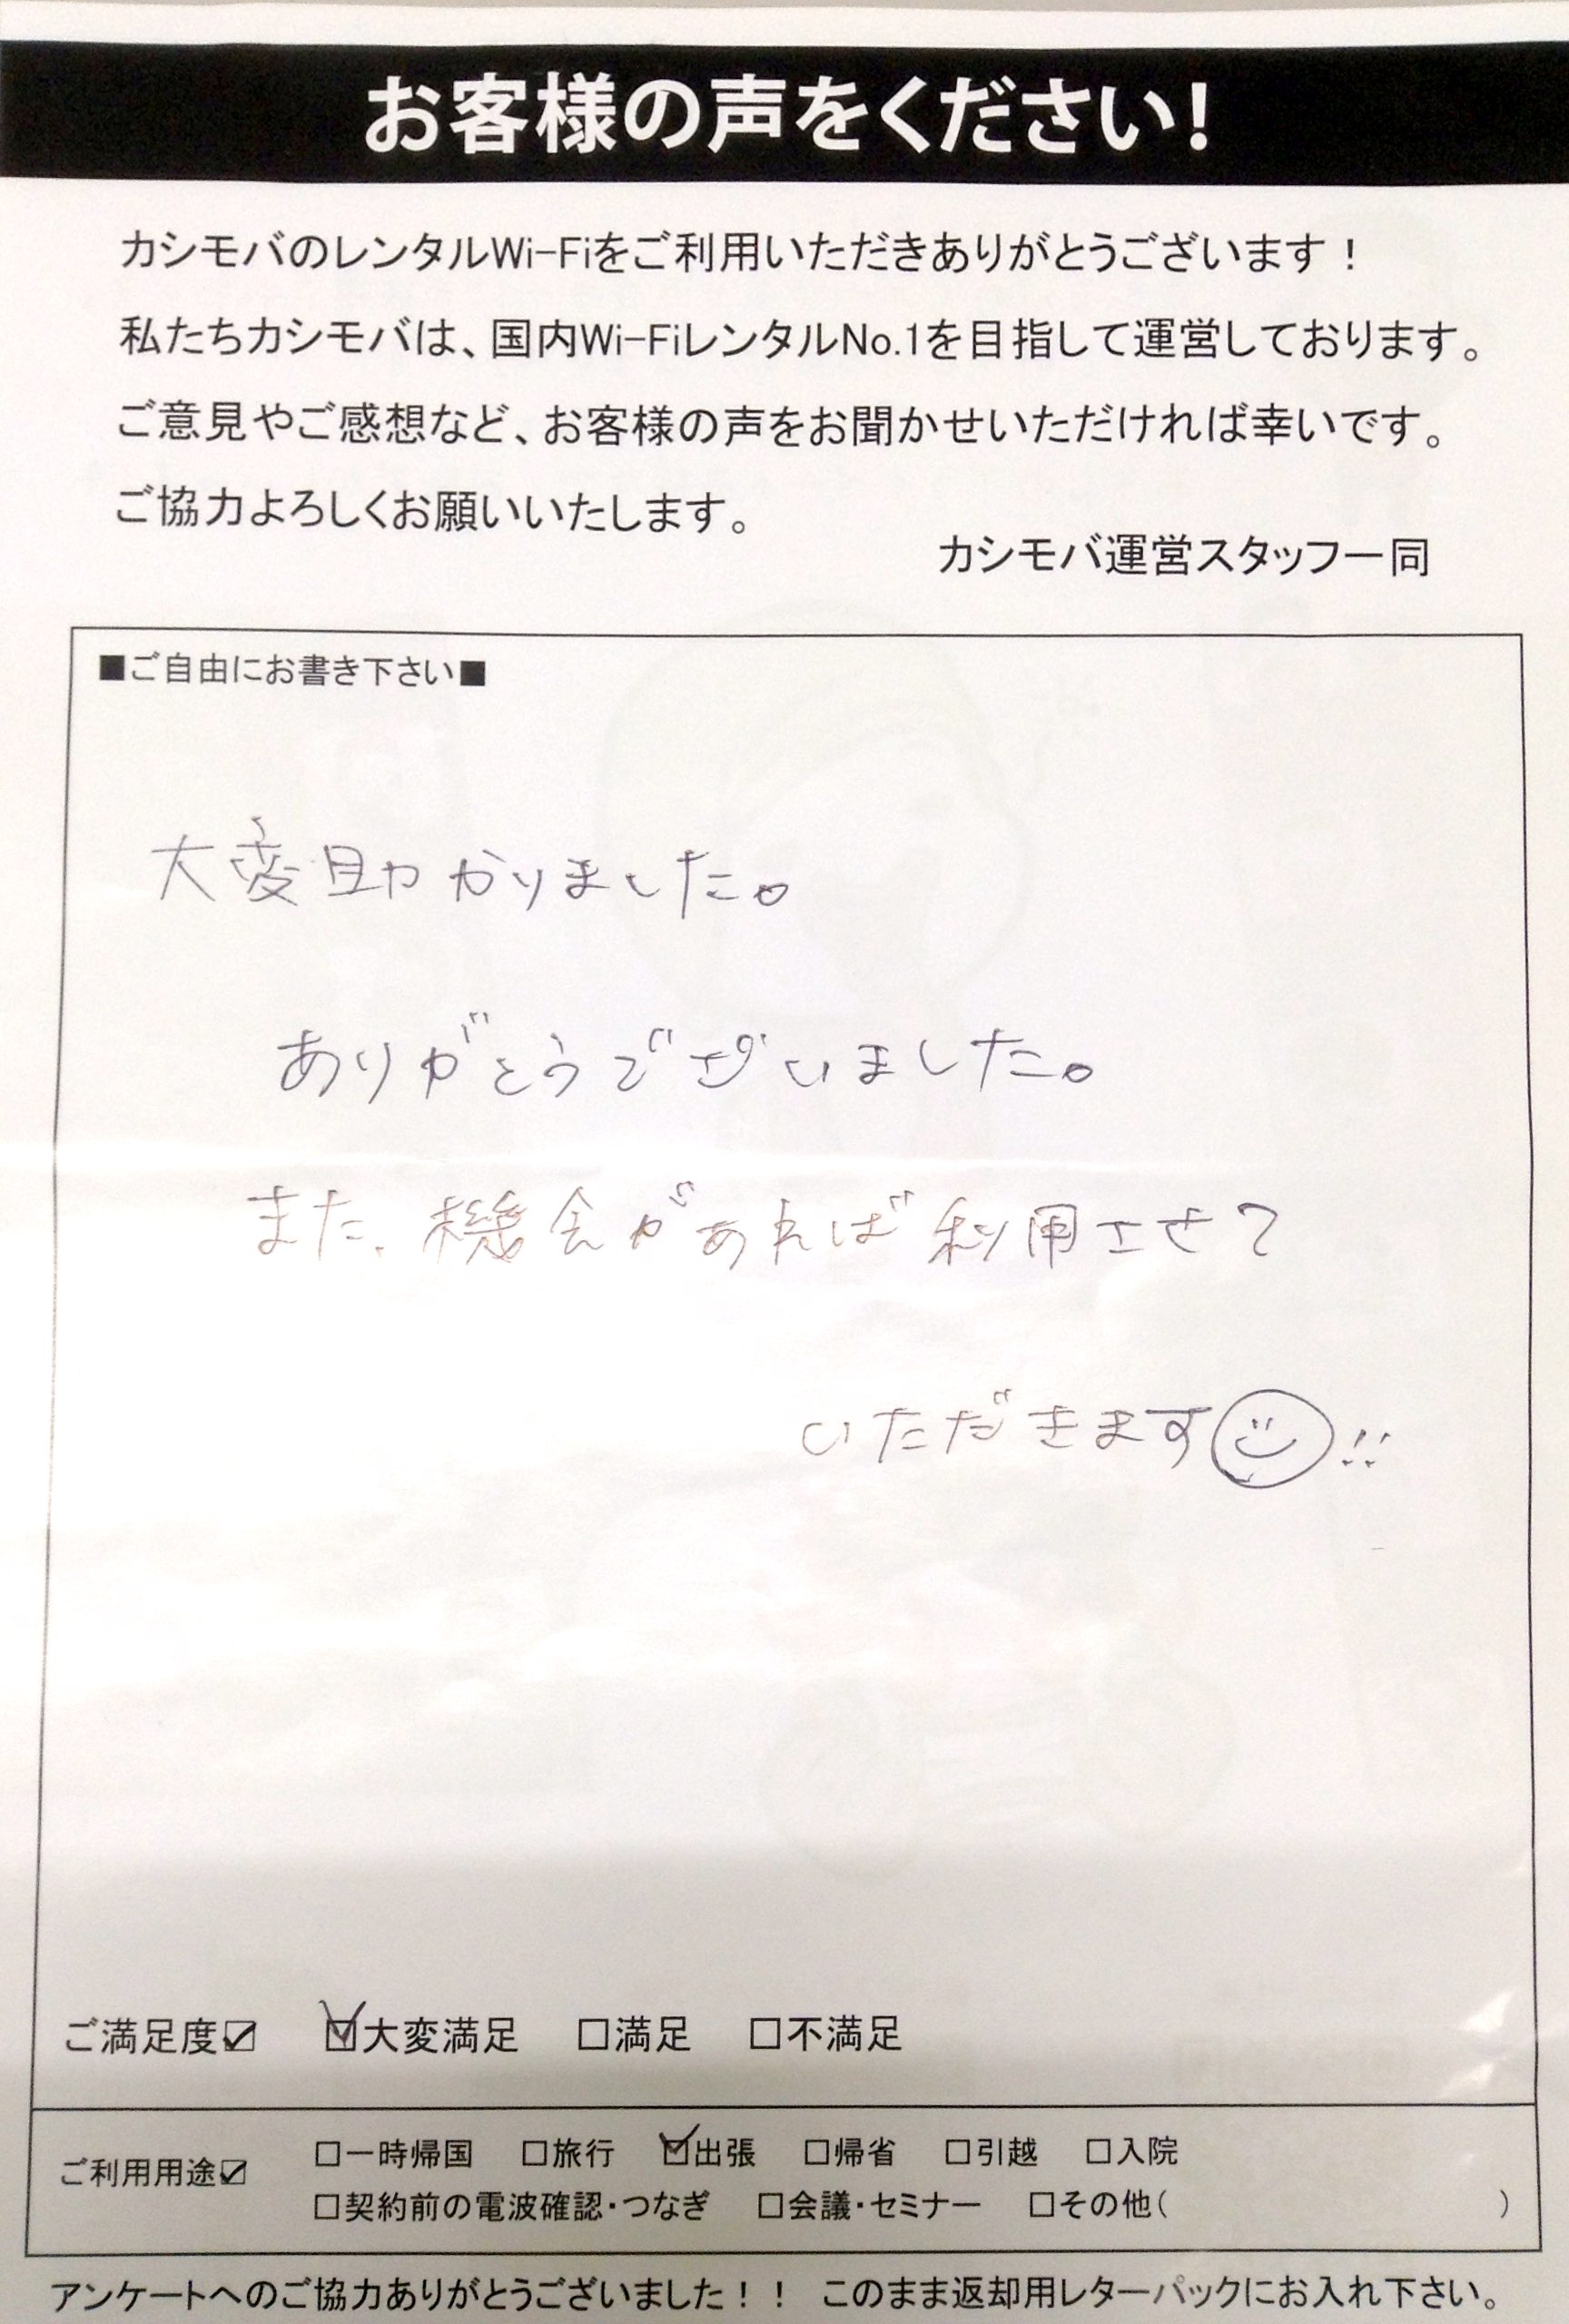 お客様の声をください!
カシモバのレンタルWi-Fiをご利用いただきありがとうございます！
私たちカシモバは、国内Wi-FiレンタルNo.1を目指して運営しております。
ご意見やご感想など、お客様の声をお聞かせいただければ幸いです。
ご協力よろしくお願いいたします。
カシモバ運営スタッフ一同
■ご自由にお書き下さい■
大変助かりました。
ありがとうございました。
また、機会があれば利用させて
いただきます☺!!
ご満足度☑ ☑大変満足 □満足 □不満足
ご利用用途☑ □一時帰国 □旅行 ☑出張 □帰省 □引越 □入院
□契約前の電波確認・つなぎ □会議・セミナー □その他( )
アンケートへのご協力ありがとうございました！！ このまま返却用レターパックにお入れ下さい。